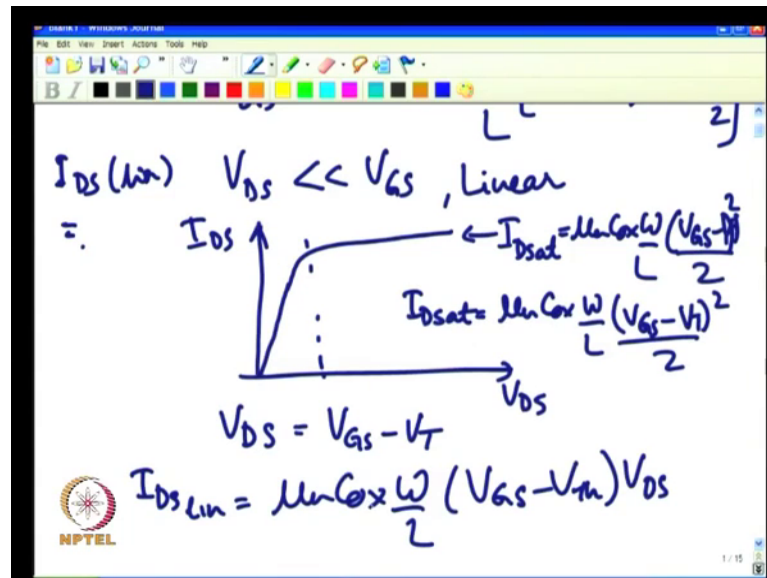 Blank1 - Windows Journal
File Edit View Insert Actions Tools Help
B I
L 2]
I_DS (lin) V_DS << V_GS , Linear
=.
I_DS
← I_Dsat = μn Cox W/L (V_GS - )²/2
I_Dsat = μn Cox W/L (V_GS - V_T)²/2
V_DS
V_DS = V_GS - V_T
I_DS lin = μn Cox W/2 (V_GS - V_Th) V_DS
NPTEL
1 / 15